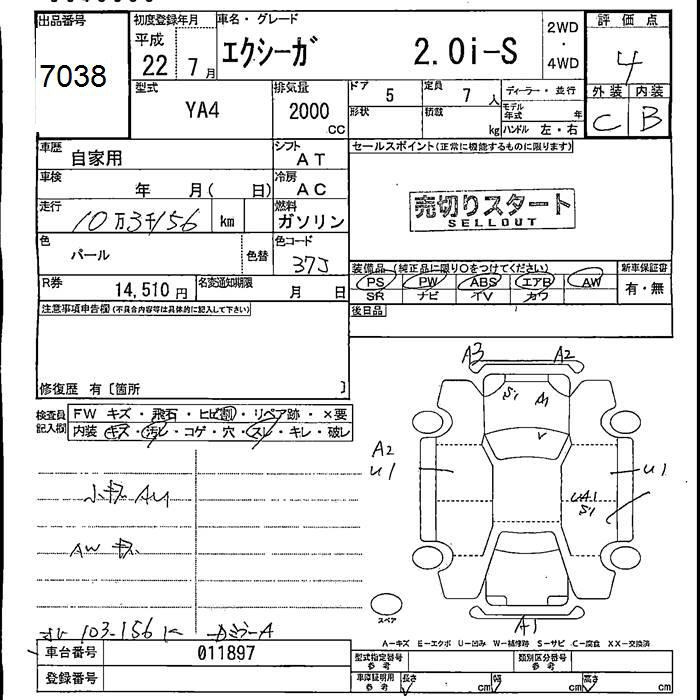 出品番号
7038
初度登録年月
平成
22年7月
車名・グレード
エクシーガ 2.0i-S
2WD
・
4WD
評価点
4
外装 内装
C B
型式
YA4
排気量
2000
CC
ドア 5
定員 7 人
ディーラー・並行
形状
積載 kg
モデル年式 年
ハンドル 左・右
車歴
自家用
シフト
AT
セールスポイント(正常に機能するものに限ります)
車検
年 月( 日)
冷房
AC
売切りスタート
SELLOUT
走行
10万3千156 km
燃料
ガソリン
色
パール
色替
色コード
37J
装備品(純正品に限り○をつけてください)
新車保証書
PS PW ABS エアB AW
SR ナビ TV カワ
有・無
R券
14,510円
名変通知期限
月 日
後日品
注意事項申告欄(不具合内容等は具体的に記入して下さい)
修復歴 有〔箇所 〕
検査員記入欄
FW キズ・飛石・ヒビ割・リペア跡・×要
内装 キズ・汚レ・コゲ・穴・スレ・キレ・破レ
小キズ AU
AW キズ
103-156
A3 A2
S1 A1
A2
U1
U1
UA1
S1
A1
スペア
A-キズ E-エクボ U-凹み W-補修跡 S-サビ C-腐食 XX-交換済
車台番号
011897
登録番号
型式指定番号
参考
類別区分番号
参考
車庫証明用
参考
長さ cm
幅 cm
高さ cm